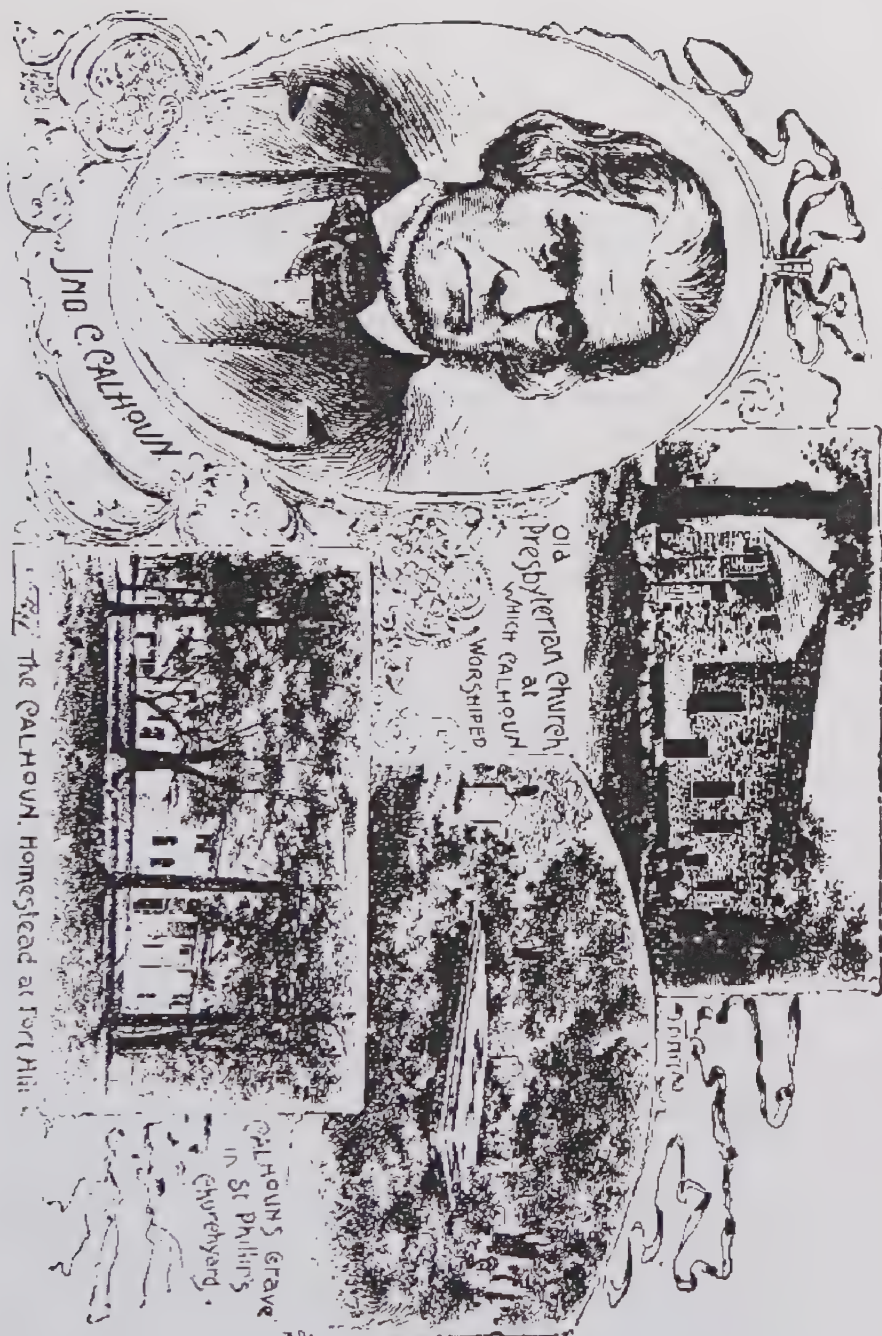 JNO C. CALHOUN.
Old
Presbyterian Church
at
WHICH CALHOUN
WORSHIPED
The CALHOUN Homestead at Fort Hill.
CALHOUNS Grave
in St Phillip's
Churchyard.